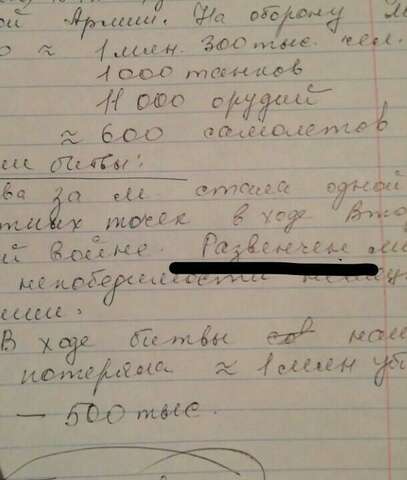 ой Армии. На оборону М
о ≈ 1 млн. 300 тыс. чел.
1000 танков
11 000 орудий
≈ 600 самолетов
ии битвы:
ва за М. стала одной
тных точек в ходе Вто
ой войне. Развенчен ми
непобедимости немец
мии.
В ходе битвы нам
потеряла ≈ 1 млн уб
— 500 тыс.